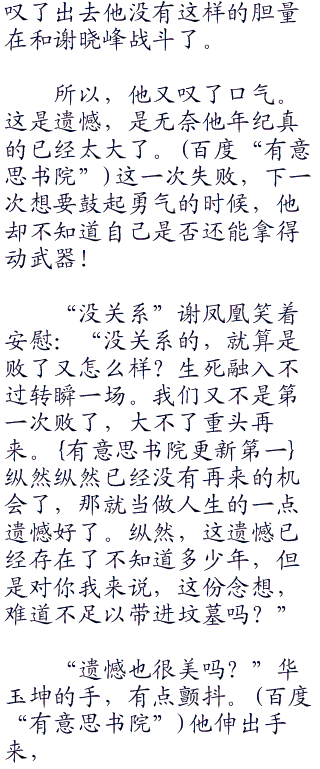 叹了出去他没有这样的胆量
在和谢晓峰战斗了。
所以，他又叹了口气。
这是遗憾，是无奈他年纪真
的已经太大了。(百度“有意
思书院”)这一次失败，下一
次想要鼓起勇气的时候，他
却不知道自己是否还能拿得
动武器！
“没关系”谢凤凰笑着
安慰：“没关系的，就算是
败了又怎么样？生死融入不
过转瞬一场。我们又不是第
一次败了，大不了重头再
来。{有意思书院更新第一}
纵然纵然已经没有再来的机
会了，那就当做人生的一点
遗憾好了。纵然，这遗憾已
经存在了不知道多少年，但
是对你我来说，这份念想，
难道不足以带进坟墓吗？”
“遗憾也很美吗？”华
玉坤的手，有点颤抖。(百度
“有意思书院”)他伸出手
来，